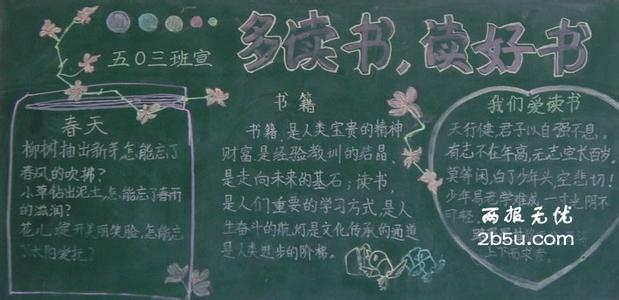 五〇三班宣
多读书,读好书
春天
柳树抽出新芽,怎能忘了
春风的吹拂?
小草钻出泥土,怎能忘了春雨
的滋润?
花儿绽开美丽笑脸,怎能忘
了太阳爱抚?
书籍
书籍是人类宝贵的精神
财富,是经验教训的结晶,
是走向未来的基石;读书,
是人们重要的学习方式,是人
生奋斗的航灯,是文化传承的通道
是人类进步的阶梯。
我们爱读书
天行健,君子以自强不息。
有志不在年高,无志空长百岁。
莫等闲,白了少年头,空悲切!
少年易老学难成,一寸光阴不
可轻。
上下而求索。
两报无忧
2b5u.com